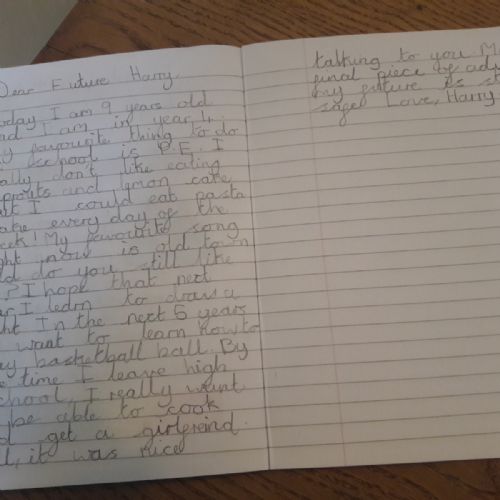 Dear Future Harry
today I am 9 years old
and I am in year 4
my favourite thing to do
school is P.E. I
really don't like eating
sprouts and lemon cake
but I could eat pasta
bake every day of the
week! My favourite song
right now is old town
do you still like
? I hope that next
year I learn to draw a
In the next 5 years
want to learn how to
play basketball ball. By
the time I leave high
school, I really want
to be able to cook
and get a girlfreind.
it was nice
talking to you My
final piece of
my future is
Love, Harry